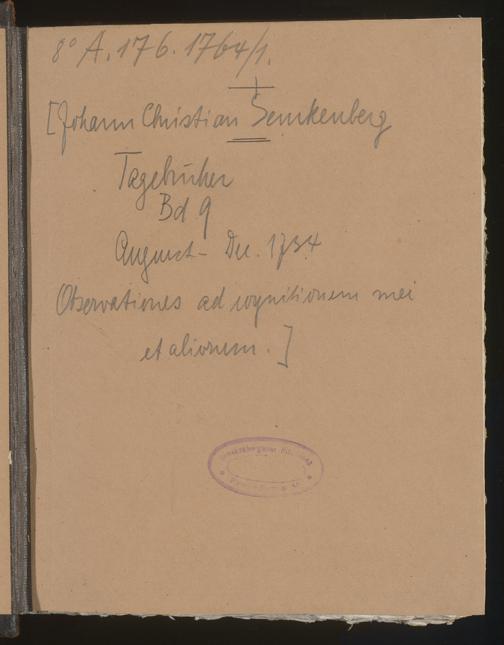 8° A. 176. 1764/1.
[Johann Christian Senckenberg
Tagebücher
Bd 9
August - Dec. 1734
Observationes ad cognitionem mei
et aliorum.]